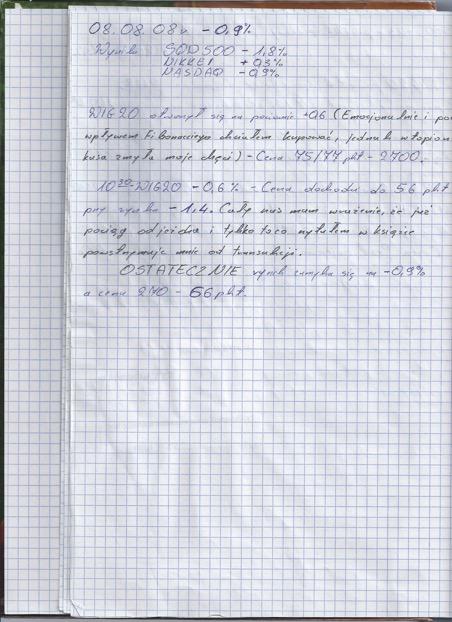 08.08.08r. -0,9%
Wyniki S&P500 - 1,8%
NIKKEI + 0,3%
NASDAQ - 0,9%
WIG20 otworzył się na poziomie +0,6 (Emocjonalnie i pod
wpływem Fibonacciego chciałem kupować, jednak wtopiona
kasa zmyła moje chęci) - Cena 75/77 pkt - 2700.
10³⁰ - WIG20 - 0,6% - Cena dochodzi do 56 pkt
przy rynku - 1,4. Cały czas mam wrażenie, że już
pociąg odjeżdża i tylko to co czytałem w książce
powstrzymuje mnie od transakcji.
OSTATECZNIE rynek zamyka się na -0,9%
a cena 270 - 66 pkt.